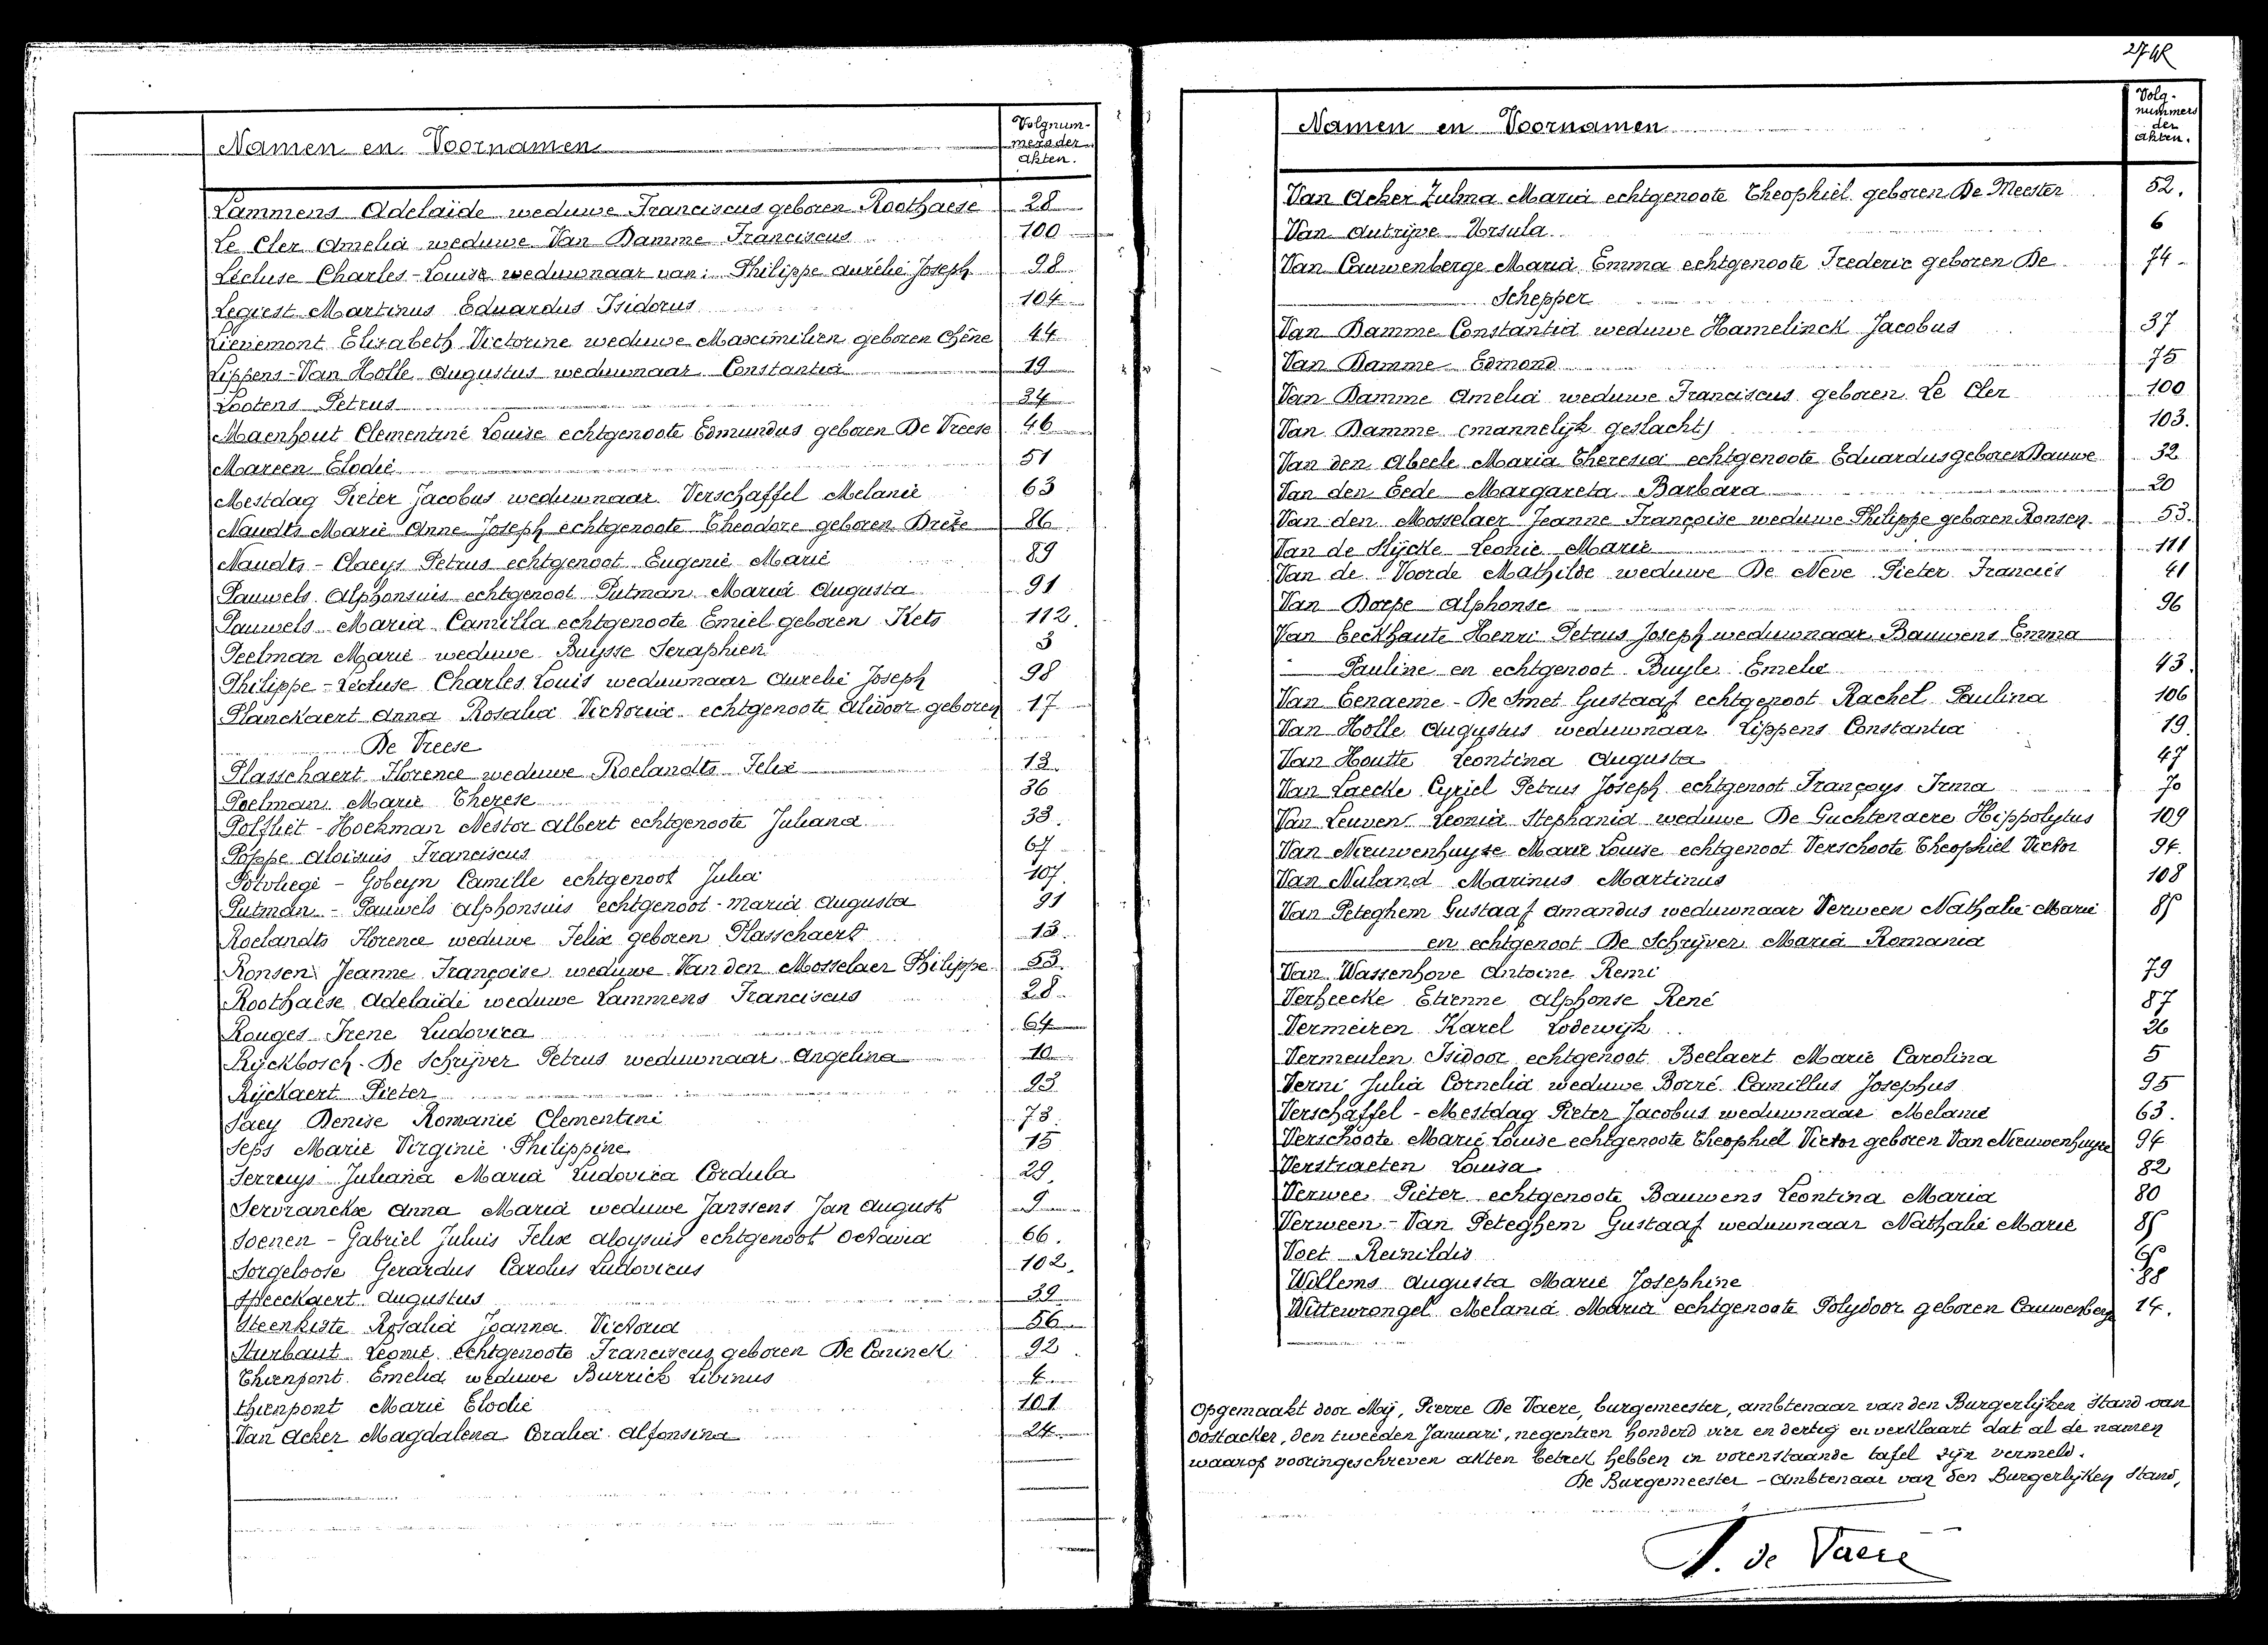 Namen en Voornamen
Volgnum-
mers der
akten.
Lammens Adelaide weduwe Franciscus geboren Roothaese 28
Le Cler Amelia weduwe Van Damme Franciscus 100
Lécluse Charles-Louis weduwnaar van: Philippe Aurélie Joseph 98
Legiest Martinus Eduardus Isidorus 104
Lievemont Elisabeth Victorine weduwe Maximilien geboren Chêne 44
Lippens-Van Holle Augustus weduwnaar Constantia 19
Lootens Petrus 34
Maenhout Clementine Louise echtgenoote Edmundus geboren De Vreese 46
Mareen Elodie 51
Mestdag Pieter Jacobus weduwnaar Verschaffel Melanie 63
Naudts Marie Anne Joseph echtgenoote Theodore geboren Brèke 86
Naudts - Claeys Petrus echtgenoot Eugenie Marie 89
Pauwels Alphonsuis echtgenoot Putman Maria Augusta 91
Pauwels Maria Camilla echtgenoote Emiel geboren Kets 112.
Peelman Marie weduwe Buysse Seraphien 3
Philippe-Lécluse Charles Louis weduwnaar Aurelie Joseph 98
Planckaert Anna Rosalia Victoria echtgenoote Alidoor geboren 17
De Vreese
Plasschaert Florence weduwe Roelandts Felix 13
Poelman Marie Therese 36
Polfliet - Hoekman Nestor Albert echtgenoote Juliana 33.
Poppe Aloisuis Franciscus 67
Potvliege - Gobeyn Camille echtgenoot Julia 107.
Putman - Pauwels Alphonsuis echtgenoot - Maria Augusta 91
Roelandts Florence weduwe Felix geboren Plasschaert 13
Ronsen Jeanne Françoise weduwe Van den Mosselaer Philippe 53.
Roothaese Adelaide weduwe Lammens Franciscus 28
Rouges Irene Ludovica 64
Ryckbosch - De Schrijver Petrus weduwnaar Angelina 10
Rÿckaert Pieter 93
Saey Denise Romanie Clementine 73.
Seps Marie Virginie Philippine 15
Serreys Juliana Maria Ludovica Cordula 29.
Servranckx Anna Maria weduwe Janssens Jan August 9
Soenen - Gabriel Juluis Felix Aloysuis echtgenoot Octavia 66.
Sorgeloose Gerardus Carolus Ludovicus 102.
Speeckaert Augustus 39
Steenkiste Rosalia Joanna Victoria 56
Sturbaut Leonie echtgenoote Franciscus geboren De Coninck 92
Thienpont Emelia weduwe Burrick Livinus 4
Thienpont Marie Elodie 101
Van Acker Magdalena Coralia Alfonsina 24
274R
Namen en Voornamen
Volg-
nummers
der
akten.
Van Acker Zulma Maria echtgenoote Theophiel geboren De Meester 52.
Van Autrijve Ursula 6
Van Cauwenberge Maria Emma echtgenoote Frederic geboren De 74
Schepper
Van Damme Constantia weduwe Hamelinck Jacobus 37
Van Damme Edmond 75
Van Damme Amelia weduwe Franciscus geboren Le Cler 100
Van Damme (mannelijk geslacht) 103.
Van den Abeele Maria Theresia echtgenoote Eduardus geboren Dauwe 32
Van den Eede Margareta Barbara 20
Van den Mosselaer Jeanne Françoise weduwe Philippe geboren Ronsen 53.
Van de Slÿcke Leonie Marie 111
Van de Voorde Mathilde weduwe De Neve Pieter Francies 41
Van Dorpe Alphonse 96
Van Eeckhaute Henri Petrus Joseph weduwnaar Bauwens Emma
Pauline en echtgenoot Buyle Emelie 43.
Van Eenaeme - De Smet Gustaaf echtgenoot Rachel Paulina 106
Van Holle Augustus weduwnaar Lippens Constantia 19
Van Houtte Leontina Augusta 47
Van Laecke Cyriel Petrus Joseph echtgenoot Françoys Irma 70
Van Leuven Leonia Stephania weduwe De Guchtenaere Hippolytus 109
Van Nieuwenhuyse Marie Louise echtgenoot Verschoote Theophiel Victor 94.
Van Nuland Marinus Martinus 108
Van Peteghem Gustaaf Amandus weduwnaar Verween Nathalie Marie 85
en echtgenoot De Schrijver Maria Romania
Van Wassenhove Antoine Remi 79
Verheecke Etienne Alphonse René 87
Vermeiren Karel Lodewijk 26
Vermeulen Isidoor echtgenoot Beelaert Marie Carolina 5
Verni Julia Cornelia weduwe Borré Camillus Josephus 95
Verschaffel - Mestdag Pieter Jacobus weduwnaar Melanie 63.
Verschoote Marie Louise echtgenoote Theophiel Victor geboren Van Nieuwenhuyse 94
Verstraeten Louisa 82
Verwee Pieter echtgenoote Bauwens Leontina Maria 80
Verween - Van Peteghem Gustaaf weduwnaar Nathalie Marie 85
Voet Reinildis
Willems Augusta Marie Josephine
Wittewrongel Melania Maria echtgenoote Polydoor geboren Cauwenberg 14.
Opgemaakt door Mij, Pierre De Vaere, burgemeester, ambtenaar van den Burgerlijken Stand van
Oostacker, den tweeden Januari, negentien honderd vier en dertig en verklaart dat al de namen
waarop vooringeschreven akten betrek hebben in vorenstaande tafel zijn vermeld.
De Burgemeester - Ambtenaar van den Burgerlijken Stand,
P. de Vaere